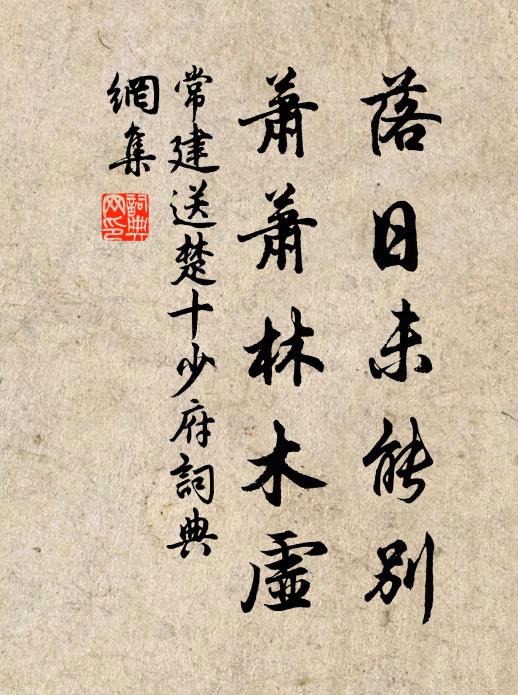 落日未能別
蕭蕭林木虛
常建送楚十少府詞典
網集
詞典
网印